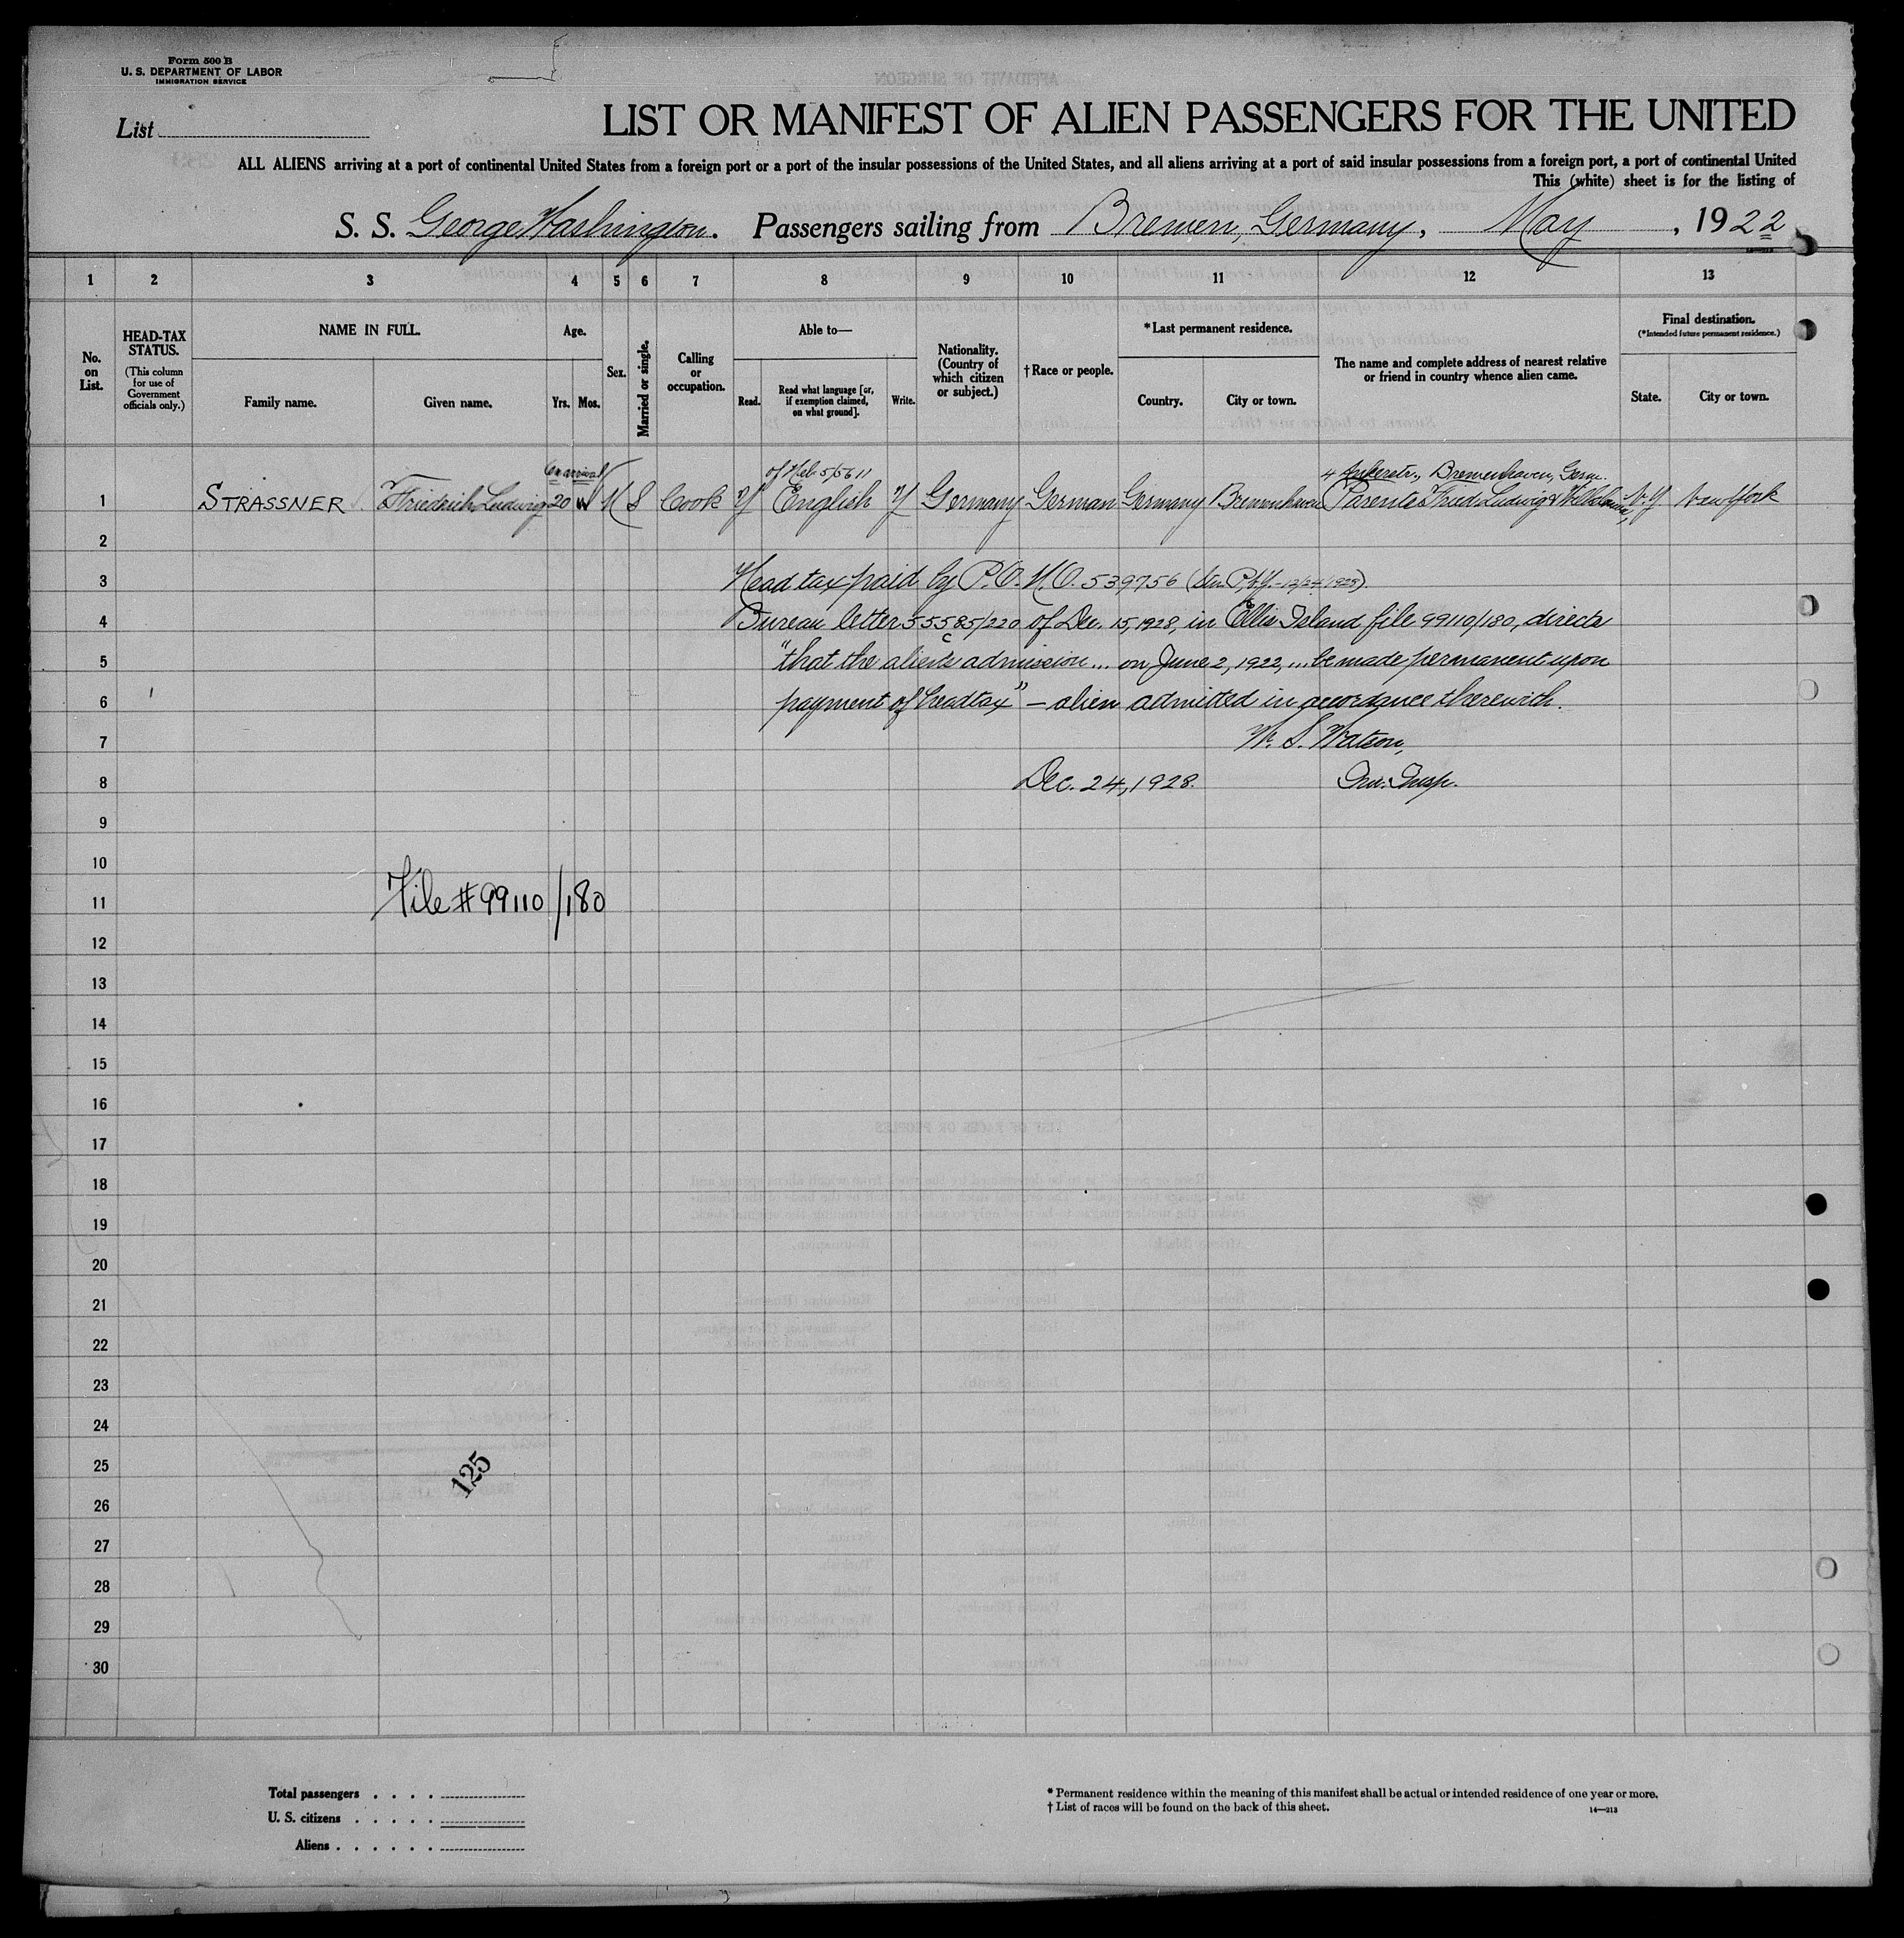 Form 500 B
U. S. DEPARTMENT OF LABOR
IMMIGRATION SERVICE
List
LIST OR MANIFEST OF ALIEN PASSENGERS FOR THE UNITED
ALL ALIENS arriving at a port of continental United States from a foreign port or a port of the insular possessions of the United States, and all aliens arriving at a port of said insular possessions from a foreign port, a port of continental United
This (white) sheet is for the listing of
S. S. George Washington. Passengers sailing from Bremen, Germany, May, 1922
1 2 3 4 5 6 7 8 9 10 11 12 13
No. on List.
HEAD-TAX STATUS.
(This column for use of Government officials only.)
NAME IN FULL.
Family name. Given name.
Age.
Yrs. Mos.
Sex.
Married or single.
Calling or occupation.
Able to—
Read. Read what language [or, if exemption claimed, on what ground]. Write.
Nationality. (Country of which citizen or subject.)
†Race or people.
*Last permanent residence.
Country. City or town.
The name and complete address of nearest relative or friend in country whence alien came.
Final destination.
(*Intended future permanent residence.)
State. City or town.
on arrival
4 Ankerstr., Bremenhaven, Germ.
1 STRASSNER Friedrich Ludwig 20 M S Cook Y English Y Germany German Germany Bremenhaven Parents Fried. Ludwig & Wilhelmina, N.Y. New York
2
3 Head tax paid by P.O. M.O. 539756
4 Bureau letter 55585/220 of Dec. 15, 1928, in Ellis Island file 99110/180, directs
5 "that the alien's admission... on June 2, 1922, ...be made permanent upon
6 payment of headtax" – alien admitted in accordance therewith.
7 W. S. Watson,
8 Dec. 24, 1928. Imm. Insp.
9
10
11 File #99110/180
12
13
14
15
16
17
18
19
20
21
22
23
24
25
125
26
27
28
29
30
Total passengers
U. S. citizens
Aliens
* Permanent residence within the meaning of this manifest shall be actual or intended residence of one year or more.
† List of races will be found on the back of this sheet.
14—213